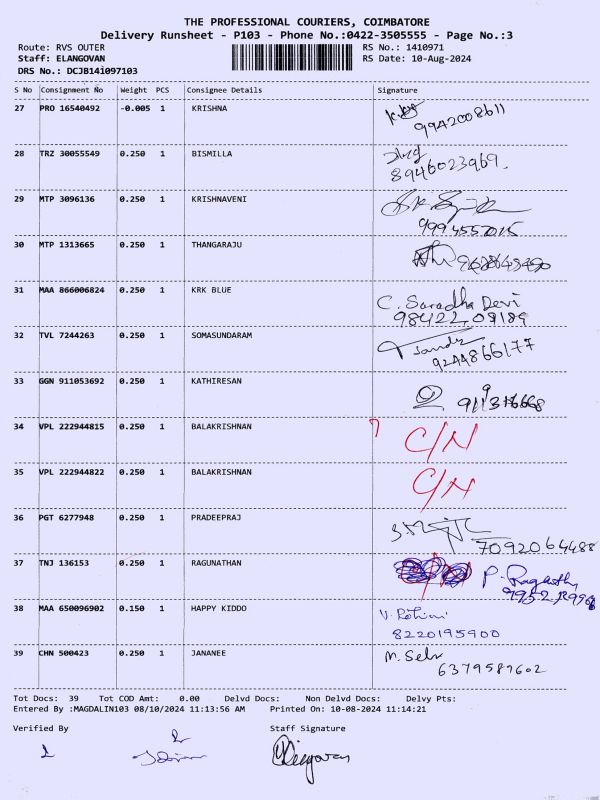 THE PROFESSIONAL COURIERS, COIMBATORE
Delivery Runsheet - P103 - Phone No.:0422-3505555 - Page No.:3
Route: RVS OUTER RS No.: 1410971
Staff: ELANGOVAN RS Date: 10-Aug-2024
DRS No.: DCJB141097103
S No Consignment No Weight PCS Consignee Details Signature
27 PRO 16540492 -0.005 1 KRISHNA
9942008611
28 TRZ 30055549 0.250 1 BISMILLA
8946023969.
29 MTP 3096136 0.250 1 KRISHNAVENI
30 MTP 1313665 0.250 1 THANGARAJU
31 MAA 866006824 0.250 1 KRK BLUE
C. Saradha Devi
98422 09189
32 TVL 7244263 0.250 1 SOMASUNDARAM
9244866177
33 GGN 911053692 0.250 1 KATHIRESAN
34 VPL 222944815 0.250 1 BALAKRISHNAN C/N
35 VPL 222944822 0.250 1 BALAKRISHNAN C/N
36 PGT 6277948 0.250 1 PRADEEPRAJ
7092064488
37 TNJ 136153 0.250 1 RAGUNATHAN
38 MAA 650096902 0.150 1 HAPPY KIDDO V. Rohini
8220195900
39 CHN 500423 0.250 1 JANANEE M. Selv
6379589602
Tot Docs: 39 Tot COD Amt: 0.00 Delvd Docs: Non Delvd Docs: Delvy Pts:
Entered By :MAGDALIN103 08/10/2024 11:13:56 AM Printed On: 10-08-2024 11:14:21
Verified By Staff Signature